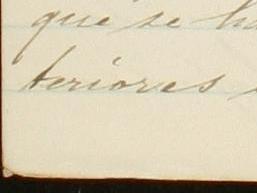 que se
teriores